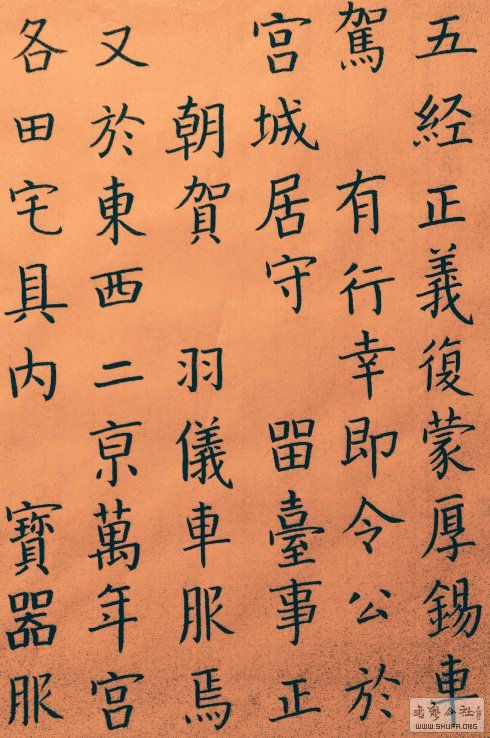 五经正義復蒙厚錫車
駕 有行幸即令公於
宫城居守 畱臺事正
朝賀 羽儀車服焉
又於東西二京萬年宫
各田宅具内 寶器服
WWW.SHUFA.ORG